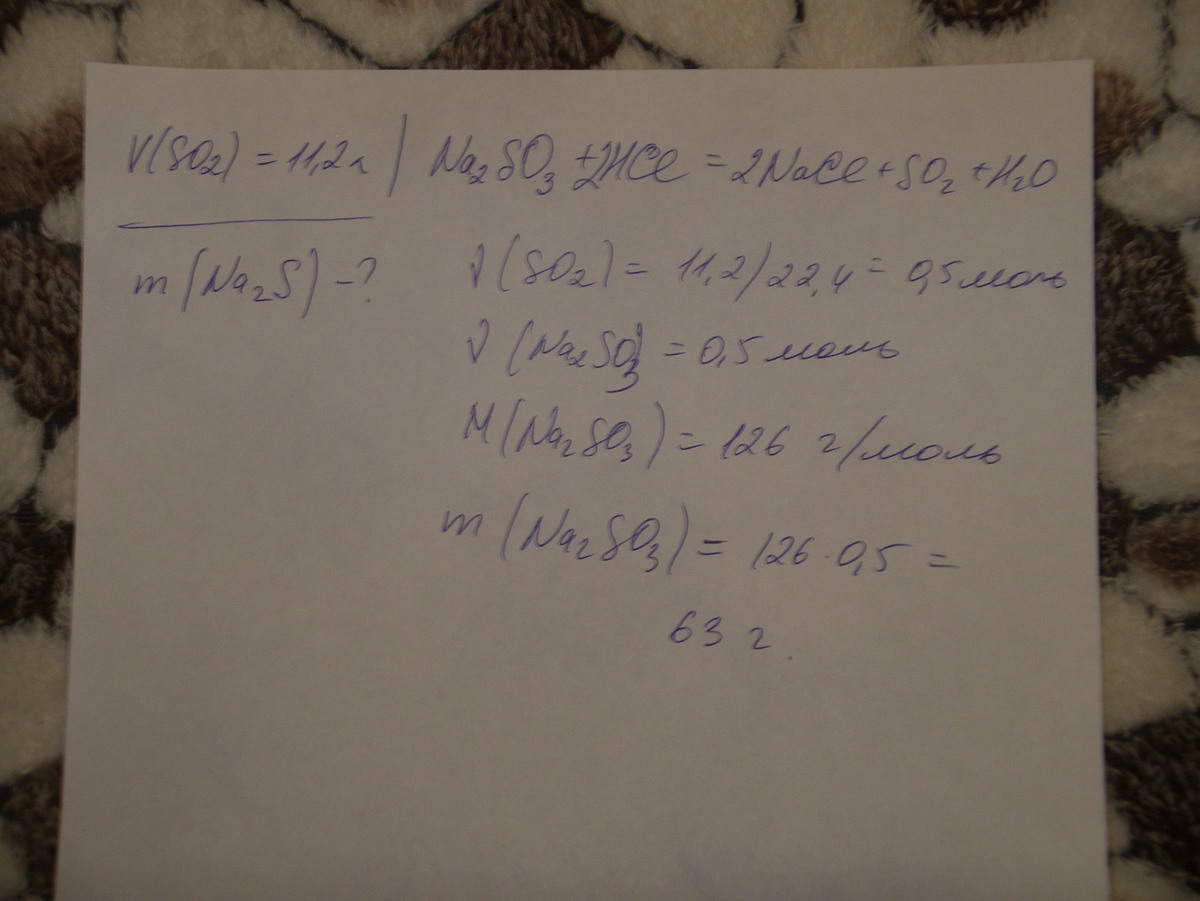 V(SO2) = 11,2л | Na2SO3 + 2HCl = 2NaCl + SO2 + H2O
m(Na2S) - ?
ν(SO2) = 11,2/22,4 = 0,5 моль
ν(Na2SO3) = 0,5 моль
M(Na2SO3) = 126 г/моль
m(Na2SO3) = 126 · 0,5 =
63 г.